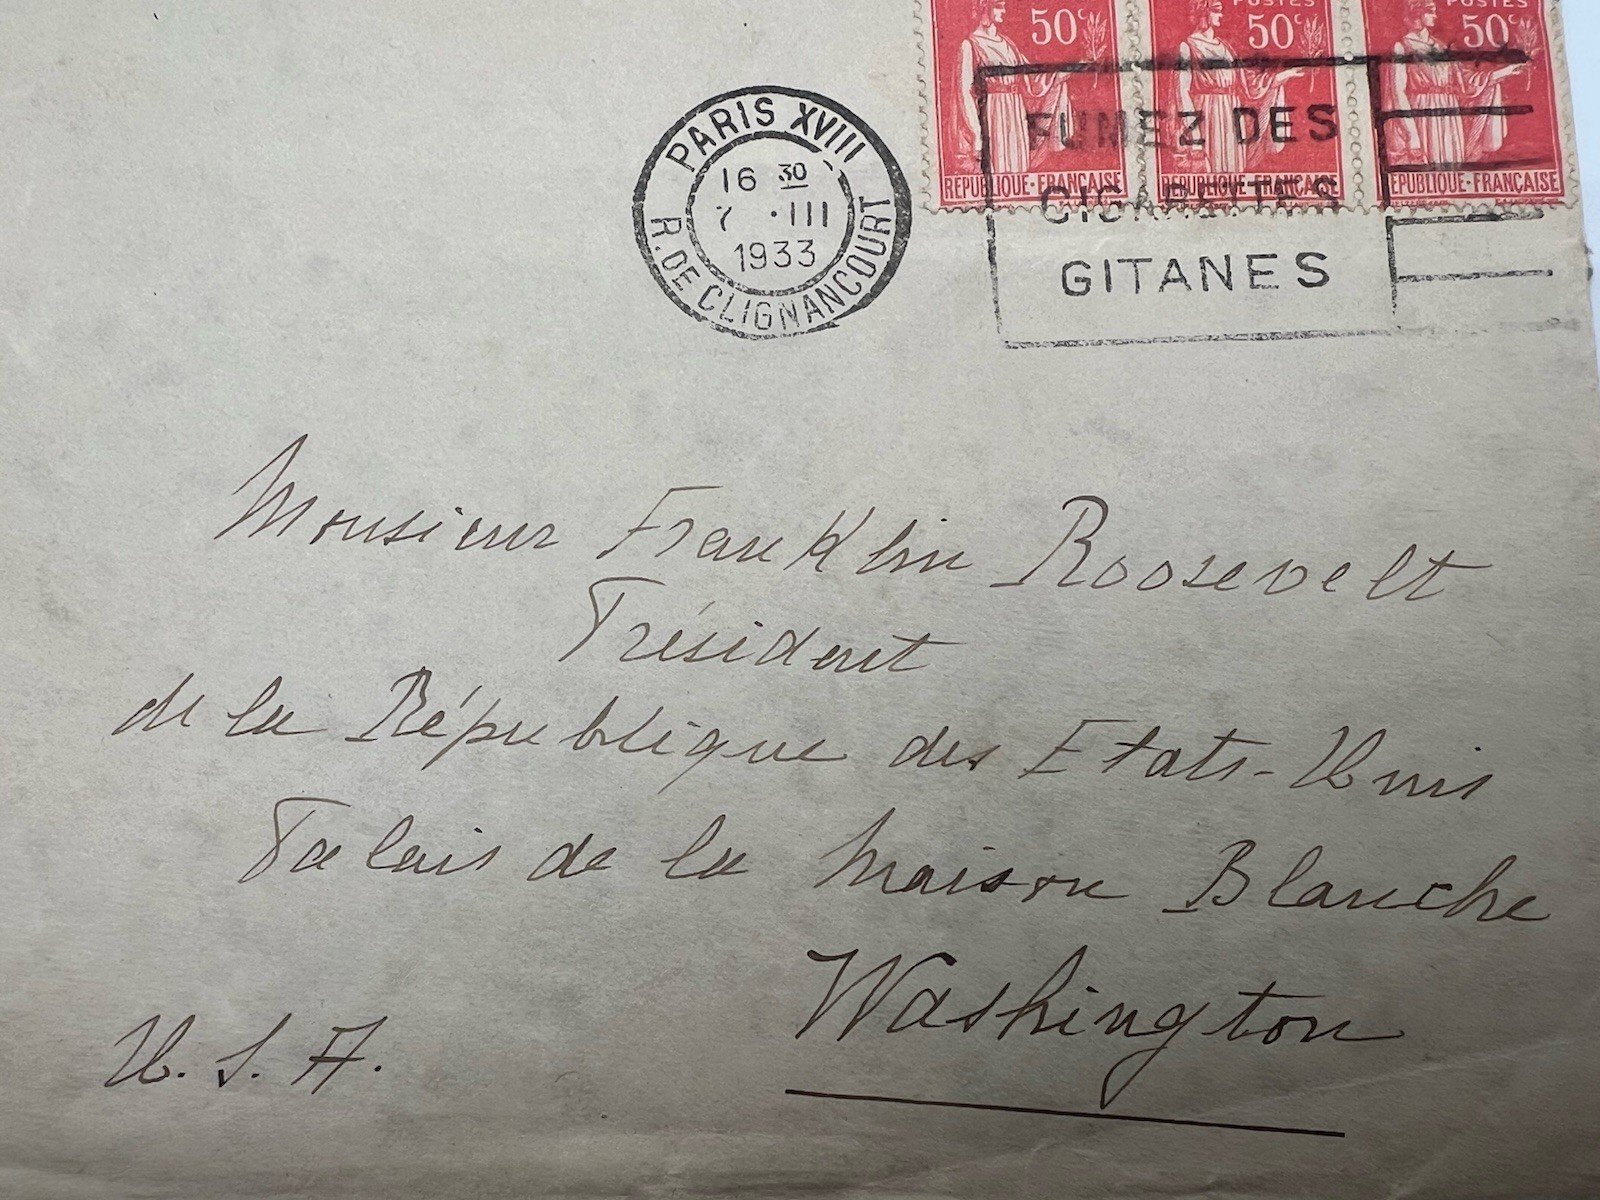 50c
POSTES 50c
POSTES 50c
RÉPUBLIQUE·FRANÇAISE
RÉPUBLIQUE·FRANÇAISE
RÉPUBLIQUE·FRANÇAISE
PARIS XVIII
16 30
7 ·III
1933
R. DE CLIGNANCOURT
FUMEZ DES
CIGARETTES
GITANES
Monsieur Franklin Roosevelt
Président
de la République des Etats-Unis
Palais de la Maison Blanche
Washington
U. S. A.